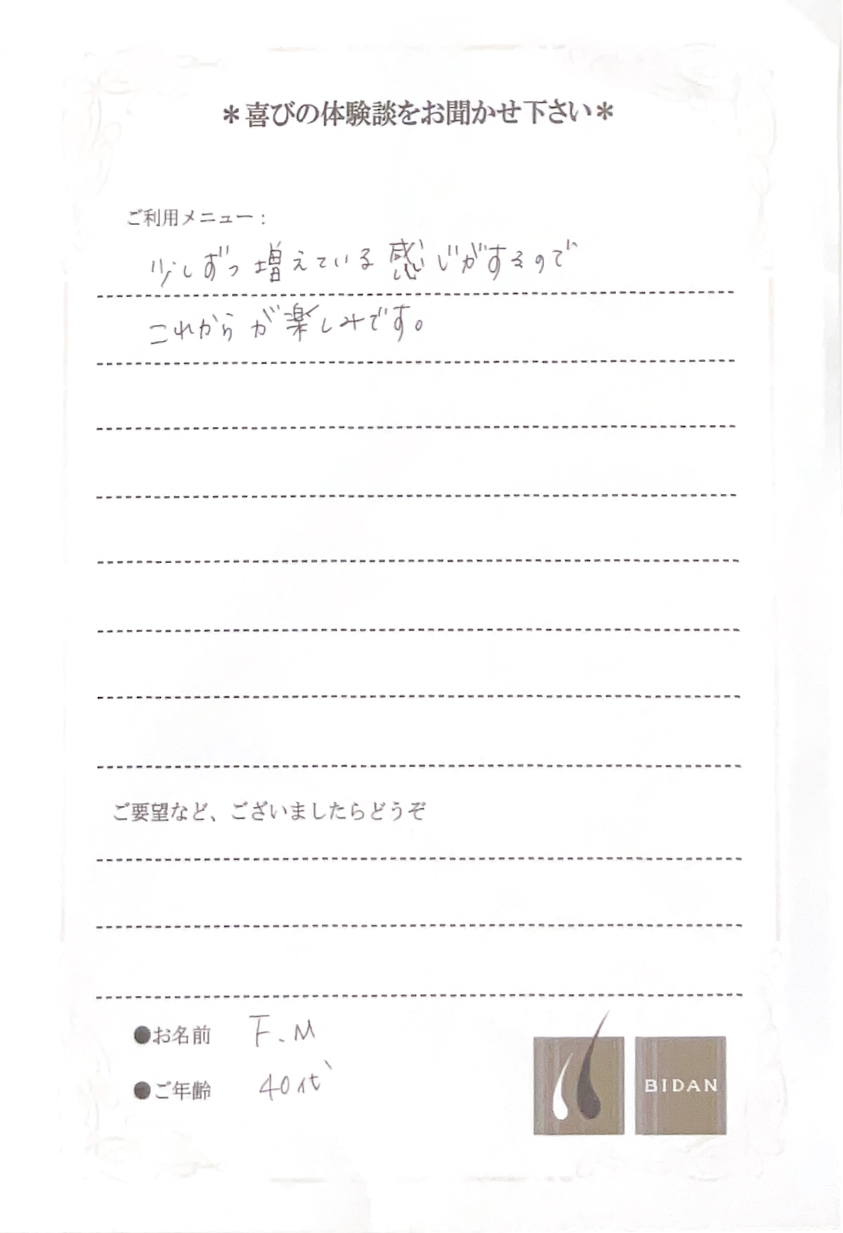 ＊喜びの体験談をお聞かせ下さい＊
ご利用メニュー：
少しずつ増えている感じがするので
これからが楽しみです。
ご要望など、ございましたらどうぞ
●お名前 F.M
●ご年齢 40代
BIDAN